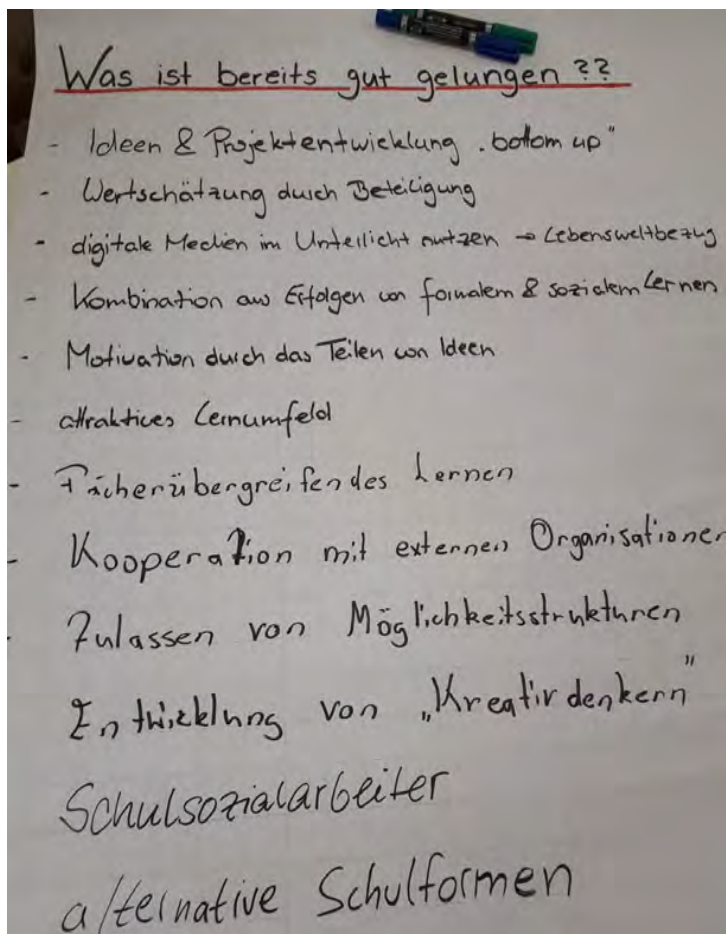 Was ist bereits gut gelungen ??
- Ideen & Projektentwicklung "bottom up"
- Wertschätzung durch Beteiligung
- digitale Medien im Unterricht nutzen → Lebensweltbezug
- Kombination aus Erfolgen von formalem & sozialem Lernen
- Motivation durch das Teilen von Ideen
- attraktives Lernumfeld
- Fächerübergreifendes Lernen
- Kooperation mit externen Organisationen
- Zulassen von Möglichkeitsstrukturen
Entwicklung von „Kreativdenkern"
Schulsozialarbeiter
alternative Schulformen